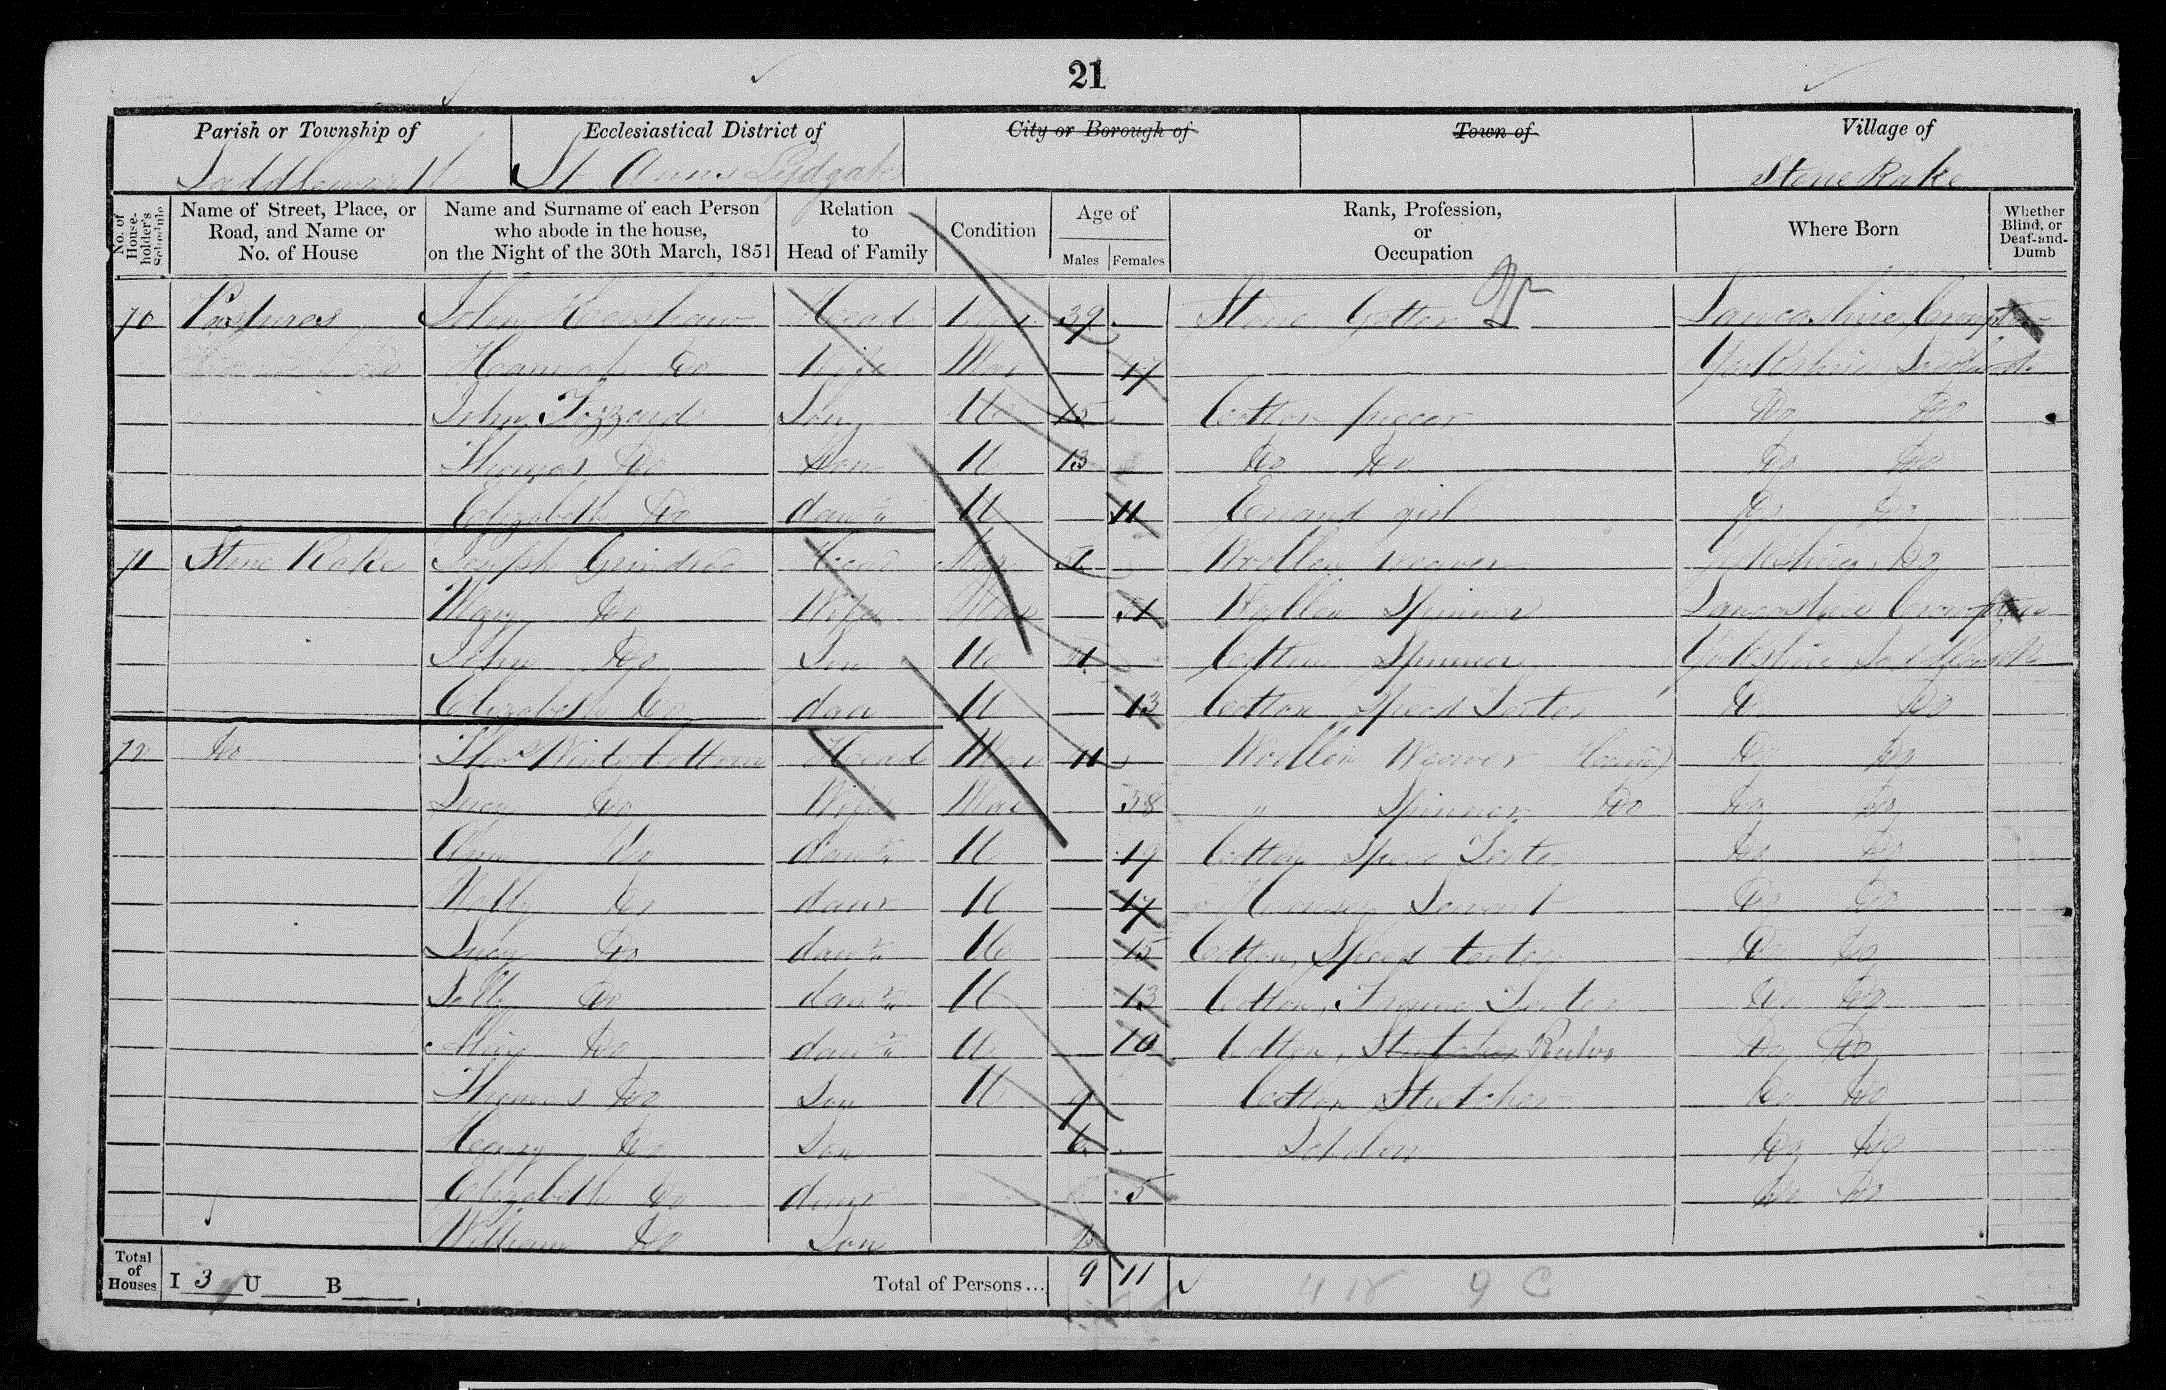 21
Parish or Township of Ecclesiastical District of City or Borough of Town of Village of
Saddleworth St Anns Lydgate Stone Rake
No. of House-holder's Schedule Name of Street, Place, or Road, and Name or No. of House Name and Surname of each Person who abode in the house, on the Night of the 30th March, 1851 Relation to Head of Family Condition Age of Males Females Rank, Profession, or Occupation Where Born Whether Blind, or Deaf-and-Dumb
70 Pastures John Head Mar 39 Stone Getter Lancashire Crompton
Hannah Do Wife Mar Yorkshire
John Son U 15 Cotton piecer Do Do
Thomas Do Son U 13 Do Do Do Do
Elizabeth Do daur U 11 Errand girl Do Do
71 Stone Rake Joseph Head Mar Woollen weaver Yorkshire Do
Mary Do Wife Mar 51 Woollen Spinner Lancashire Crompton
John Do Son U Cotton Spinner Yorkshire Saddleworth
Elizabeth Do daur U 13 Cotton Speed Tenter Do Do
72 Do Thos Winterbottom Head Mar Woollen Weaver Do Do
Lucy Do Wife Mar 38 " Spinner Do Do Do
Ann Do daur U 19 Cotton Speed Tenter Do Do
Molly Do daur U 17 House Servant Do Do
Lucy Do daur U 15 Cotton Speed tenter Do Do
Sally Do daur U 13 Cotton Frame Tenter Do Do
Alice Do daur U 10 Cotton Stretcher Do Do
Thomas Do Son U 9 Cotton Stretcher Do Do
Henry Do Son 6 Scholar Do Do
Elizabeth Do daur 5 Do Do
William Do Son
Total of Houses I 3 U B Total of Persons... 9 11